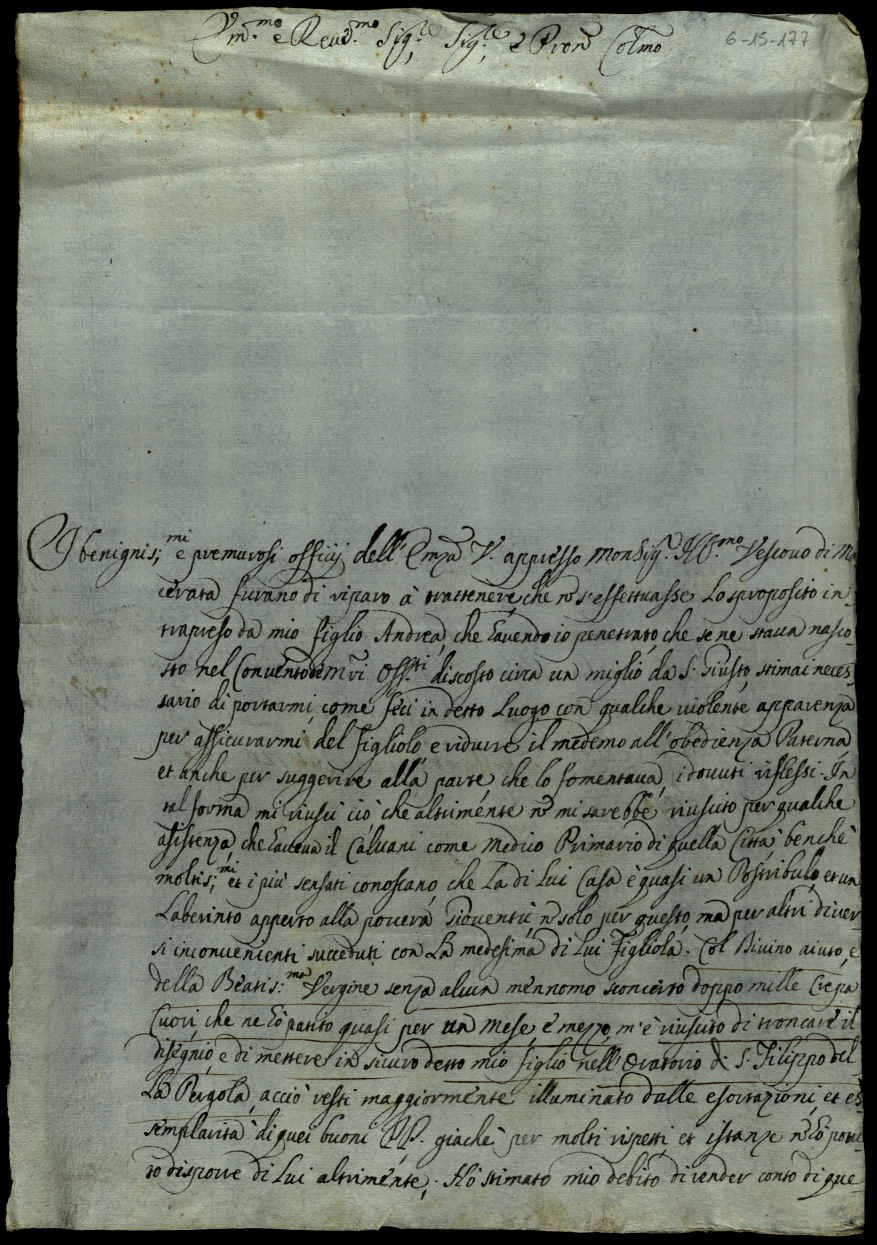 Em.mo e Reud.mo Sig.re Sig.re e Pron Colmo
6-15-177
I benignis:mi e premurosi officij dell' Emza V. appresso Monsig.r Ill.mo Vescouo di Ma
cerata furano di riparo à trattenere che ñ s'effettuasse Lo sproposito in
trapreso da mio figlio Andrea, che hauendo io penetrato, che se ne staua nasco
sto nel Conuento de Mri Oss.ti discosto circa un miglio da S. Giusto, stimai neces
sario di portarmi, come feci in detto Luogo con qualche uiolente apparenza
per assicurarmi del figliolo e ridurre il medemo all'obedienza Paterna
et anche per suggerire alla parte, che lo fomentaua, i douuti riflessi. In
tal forma mi riusci ciò che altrimente ñ mi sarebbe riuscito per qualche
asistenza, che haueua il Caluani come Medico Primario di quella Città benche
moltis:mi et i più sensati conoscano, che La di Lui Casa è quasi un Postribulo, et un
Laberinto apperto alla pouera Giouentù ñ solo per questo, ma per altri diuer
si inconuenienti succeduti con La medesima di Lui figliola. Col Diuino aiuto, e
della Beatis:ma Vergine senza alcun mennomo sconcerto doppo mille Crepa
Cuori che ne hò patito quasi per un Mese e mezzo m'è riuscito di troncare il
disegnio e di mettere in sicuro detto mio figlio nell'Oratorio di S. Filippo del
La Pergola, acciò resti maggiormente illuminato dalle esortazioni, et es
semplarità di quei buoni PP. giache per molti rispetti, et istanze ñ hò potu
to disporre di Lui altrimente. Hò stimato mio debito di render conto di que